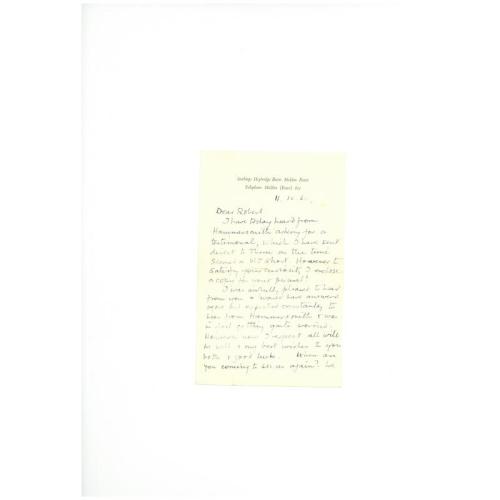 Heybridge Basin Maldon Essex
Telephone Maldon (Essex)
Dear Robert
I have today heard from
Hammersmith asking for a
testimonial, which I have sent
direct to them on the same
However to
satisfy your curiosity, I enclose
a copy for your perusal!
I was awfully pleased to hear
from you & would have answered
but expected constantly to
hear from Hammersmith & was
in fact getting quite worried.
However now I expect all will
be well & my best wishes to you
both & good luck. When are
you coming to see us again? We